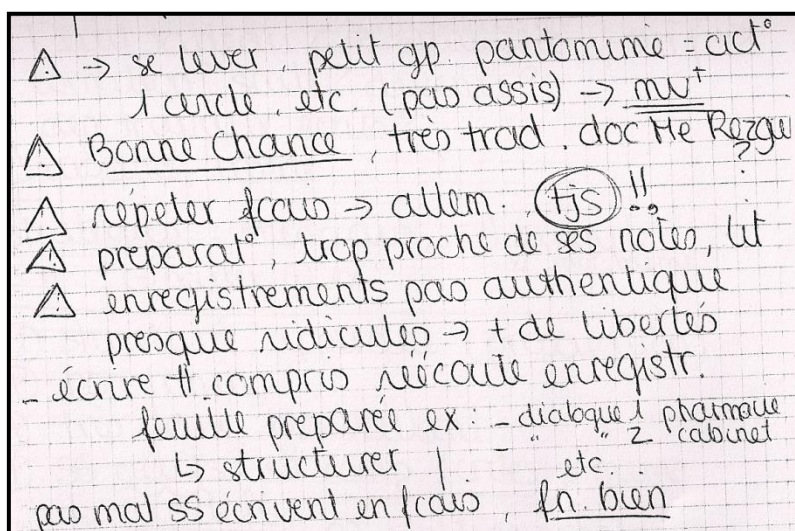 ⚠ → se lever, petit gp. pantomime = act°
1 cercle, etc. (pas assis) → mvt
⚠ Bonne Chance, très trad. doc Me Rezgui ?
⚠ répeter fcais → allem. tjs !!
⚠ preparat°, trop proche de ses notes, lit
⚠ enregistrements pas authentique
presque ridicules → + de libertés
- écrire tt compris réécoute enregistr.
feuille préparée ex: - dialogue 1 pharmacie
- " " 2 cabinet
↳ structurer | etc.
pas mal SS écrivent en fcais, fn. bien